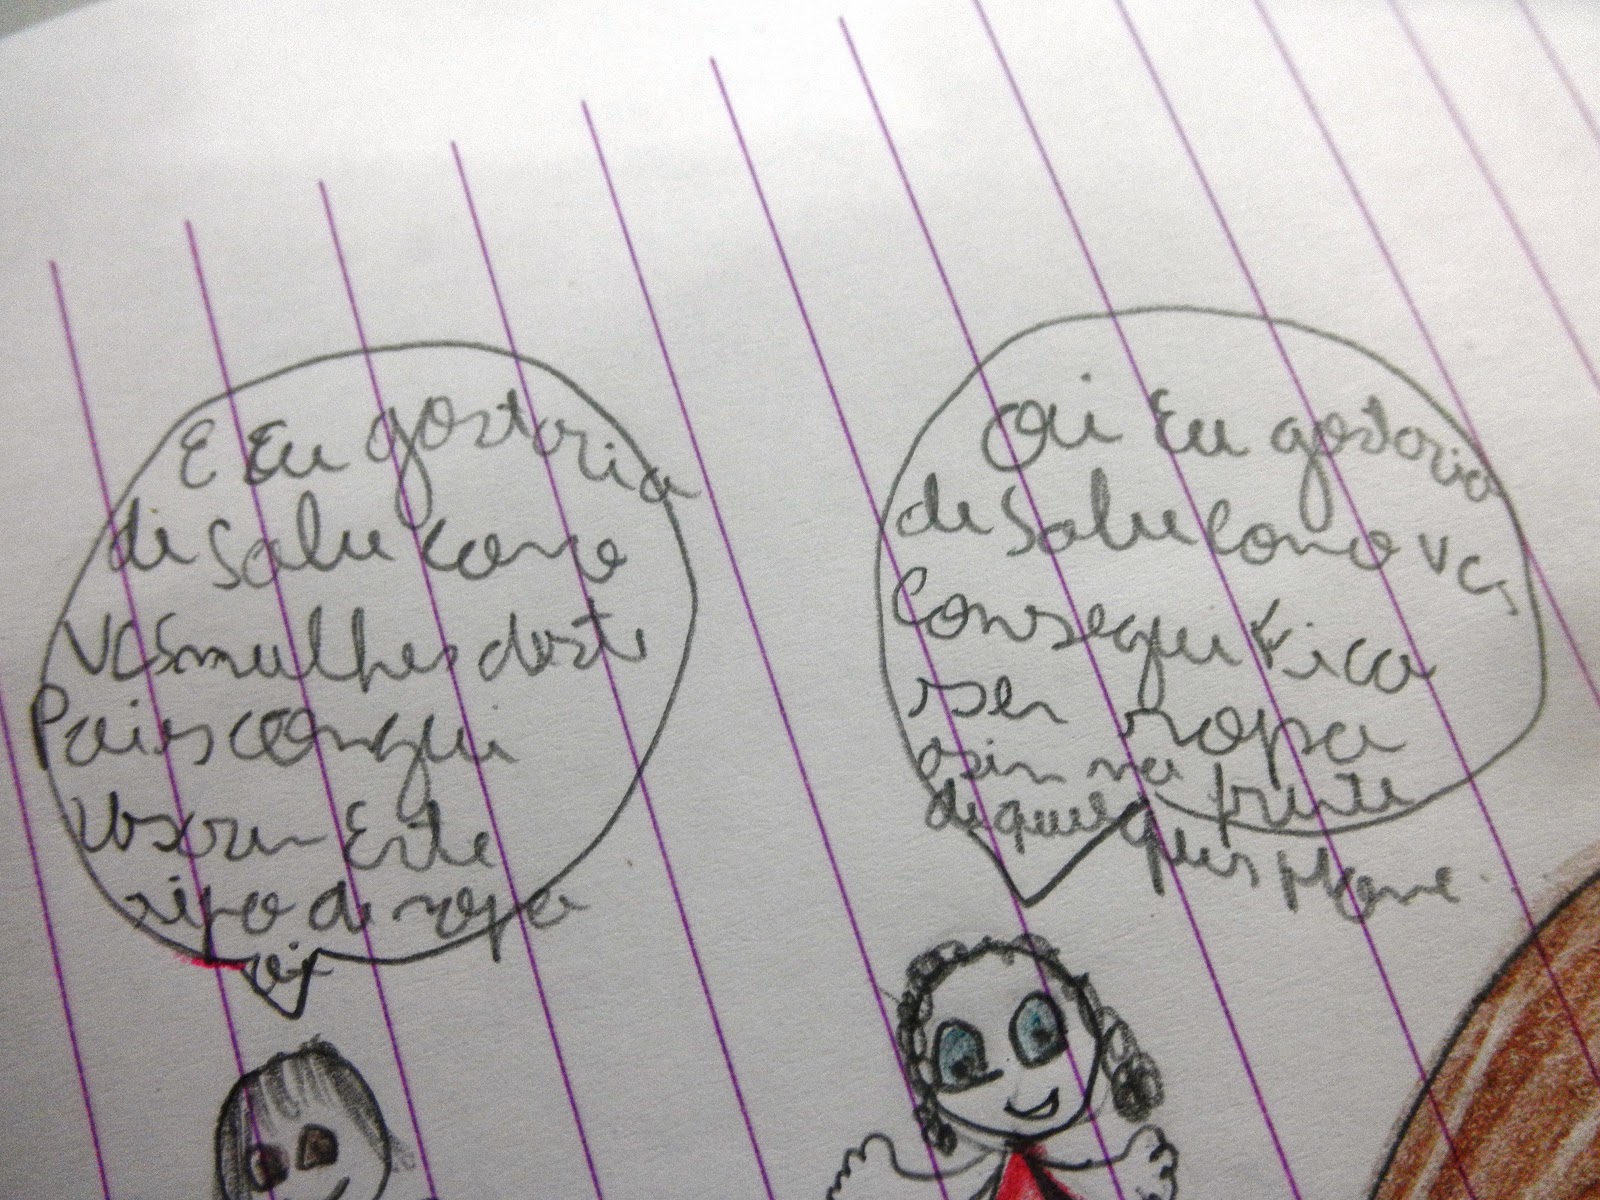 E Eu gostaria
de sabe como
vcs mulhes deste
Pais consegui
usarem Este
tipo de ropa
Oi Eu gostaria
de sabe como vcs
consegui fica
sen ropa
asin na frente
de